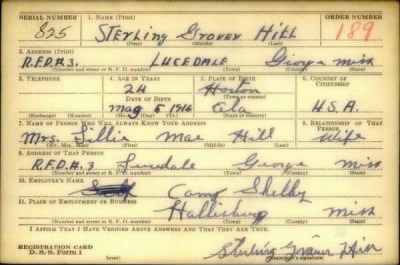 SERIAL NUMBER 1. NAME (Print) ORDER NUMBER
825 Sterling Grover Hill 189
(First) (Middle) (Last)
2. ADDRESS (Print)
R.F.D.#3. LUCEDALE George Miss
(Number and street or R. F. D. number) (Town) (County) (State)
3. TELEPHONE 4. AGE IN YEARS 5. PLACE OF BIRTH 6. COUNTRY OF CITIZENSHIP
24 Horton
DATE OF BIRTH (Town or county)
May 5 1916 Ala U.S.A.
(Exchange) (Number) (Mo.) (Day) (Yr.) (State or country)
7. NAME OF PERSON WHO WILL ALWAYS KNOW YOUR ADDRESS 8. RELATIONSHIP OF THAT PERSON
Mrs. Lillie Mae Hill Wife
(Mr., Mrs., Miss) (First) (Middle) (Last)
9. ADDRESS OF THAT PERSON
R.F.D.#.3 Lucedale George Miss
(Number and street or R. F. D. number) (Town) (County) (State)
10. EMPLOYER'S NAME
Camp Shelby
11. PLACE OF EMPLOYMENT OR BUSINESS
Hattisburg Miss
(Number and street or R. F. D. number) (Town) (County) (State)
I AFFIRM THAT I HAVE VERIFIED ABOVE ANSWERS AND THAT THEY ARE TRUE.
REGISTRATION CARD
D. S. S. Form 1 Sterling Grover Hill